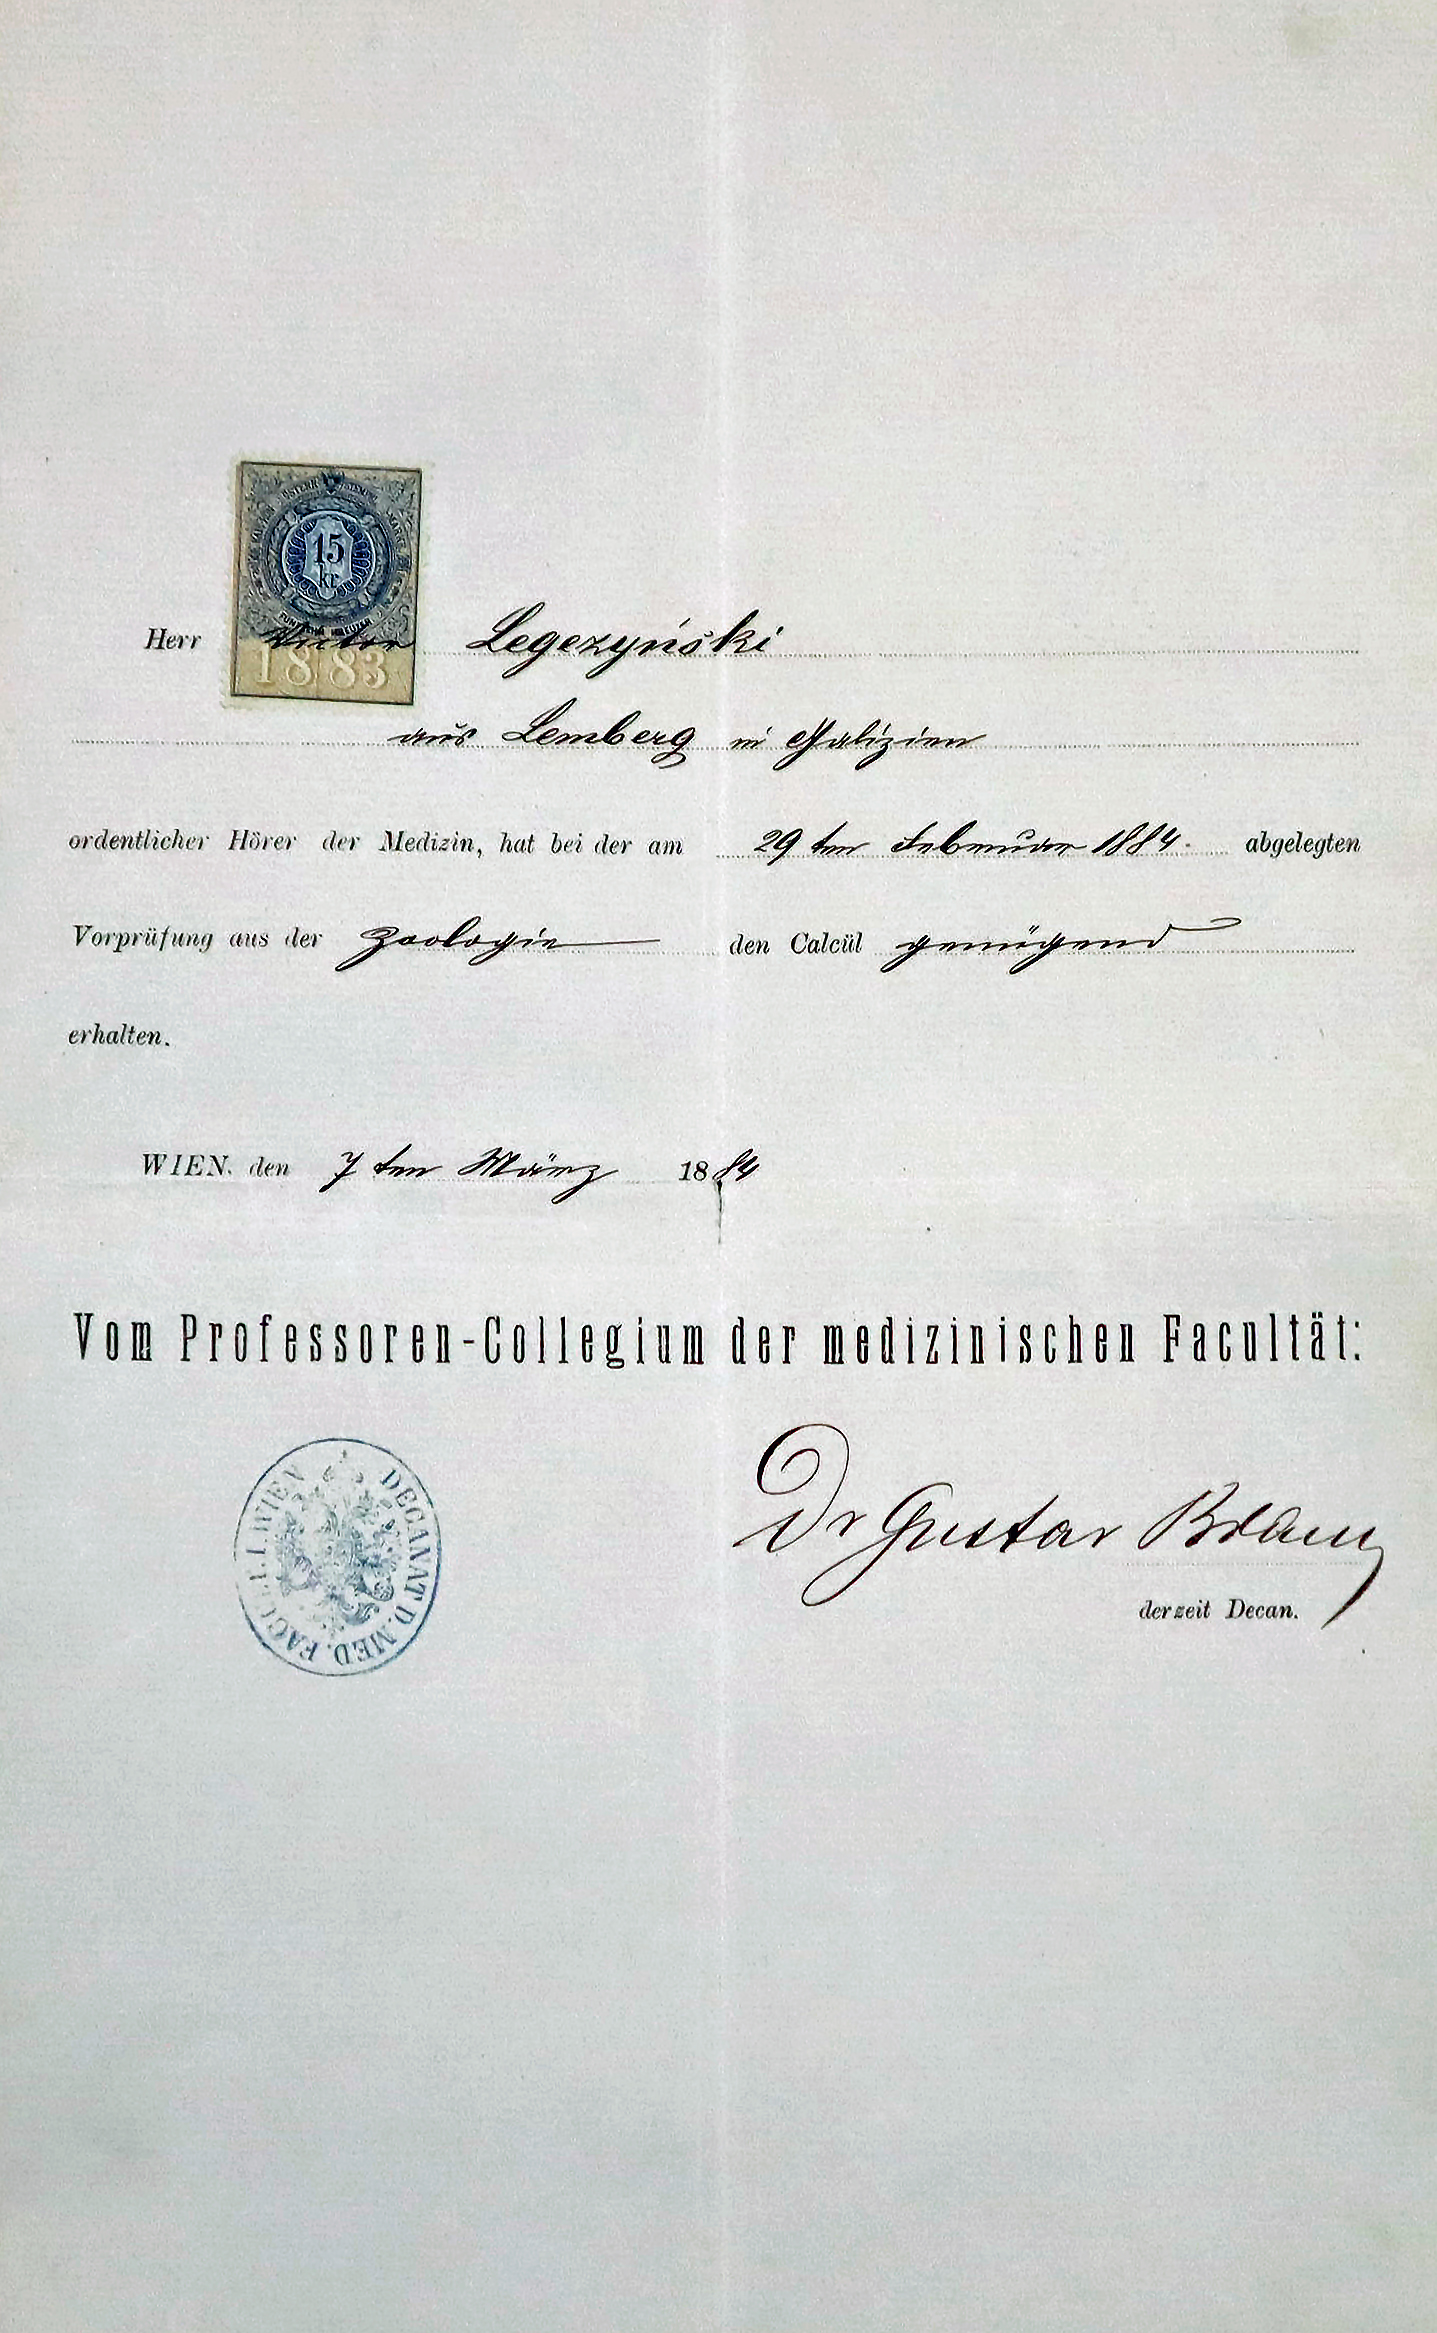 15
kr.
1883
Herr Victor Legezyński
aus Lemberg in Galizien
ordentlicher Hörer der Medizin, hat bei der am 29ten Februar 1884. abgelegten
Vorprüfung aus der Zoologie den Calcül genügend
erhalten.
WIEN, den 7ten März 1884
Vom Professoren-Collegium der medizinischen Facultät:
DECANAT D. MED. FACULT. I. WIEN
Dr Gustav Braun
derzeit Decan.